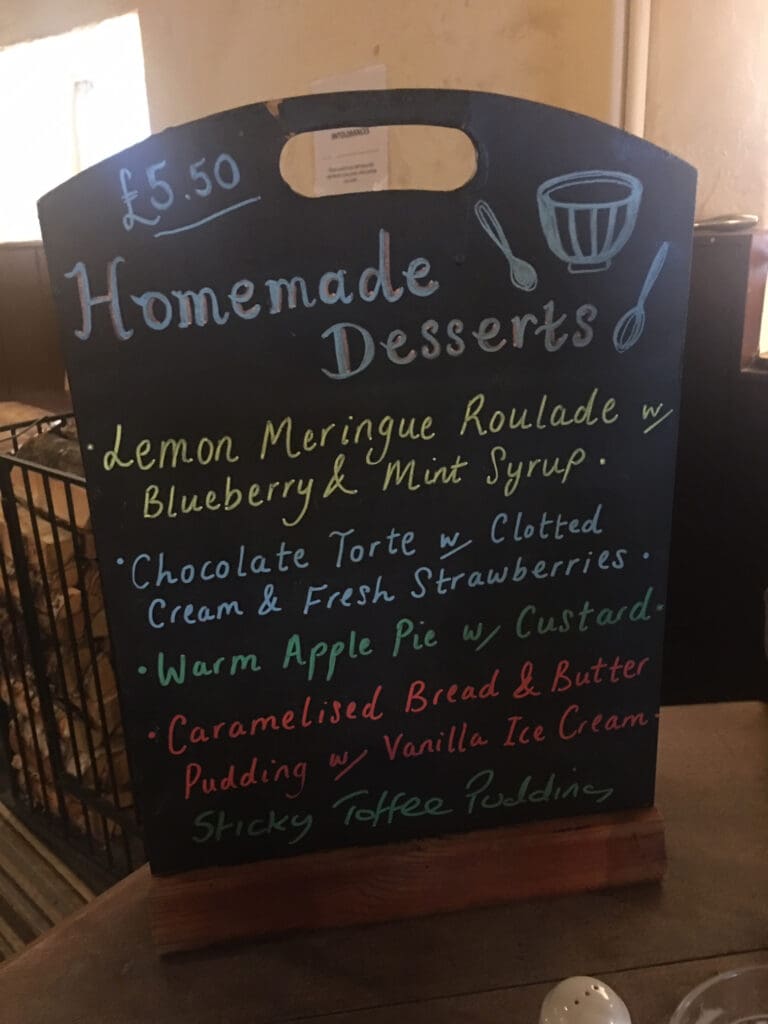 INTOLERANCES
£5.50
Homemade
Desserts
· Lemon Meringue Roulade w/
Blueberry & Mint Syrup ·
· Chocolate Torte w/ Clotted
Cream & Fresh Strawberries ·
· Warm Apple Pie w/ Custard ·
· Caramelised Bread & Butter
Pudding w/ Vanilla Ice Cream ·
Sticky Toffee Pudding